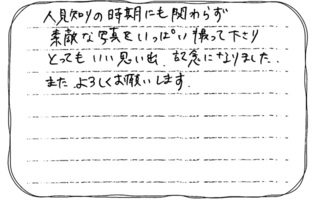 人見知りの時期にも関わらず
素敵な写真をいっぱい撮って下さり
とってもいい思い出、記念になりました。
また よろしくお願いします。